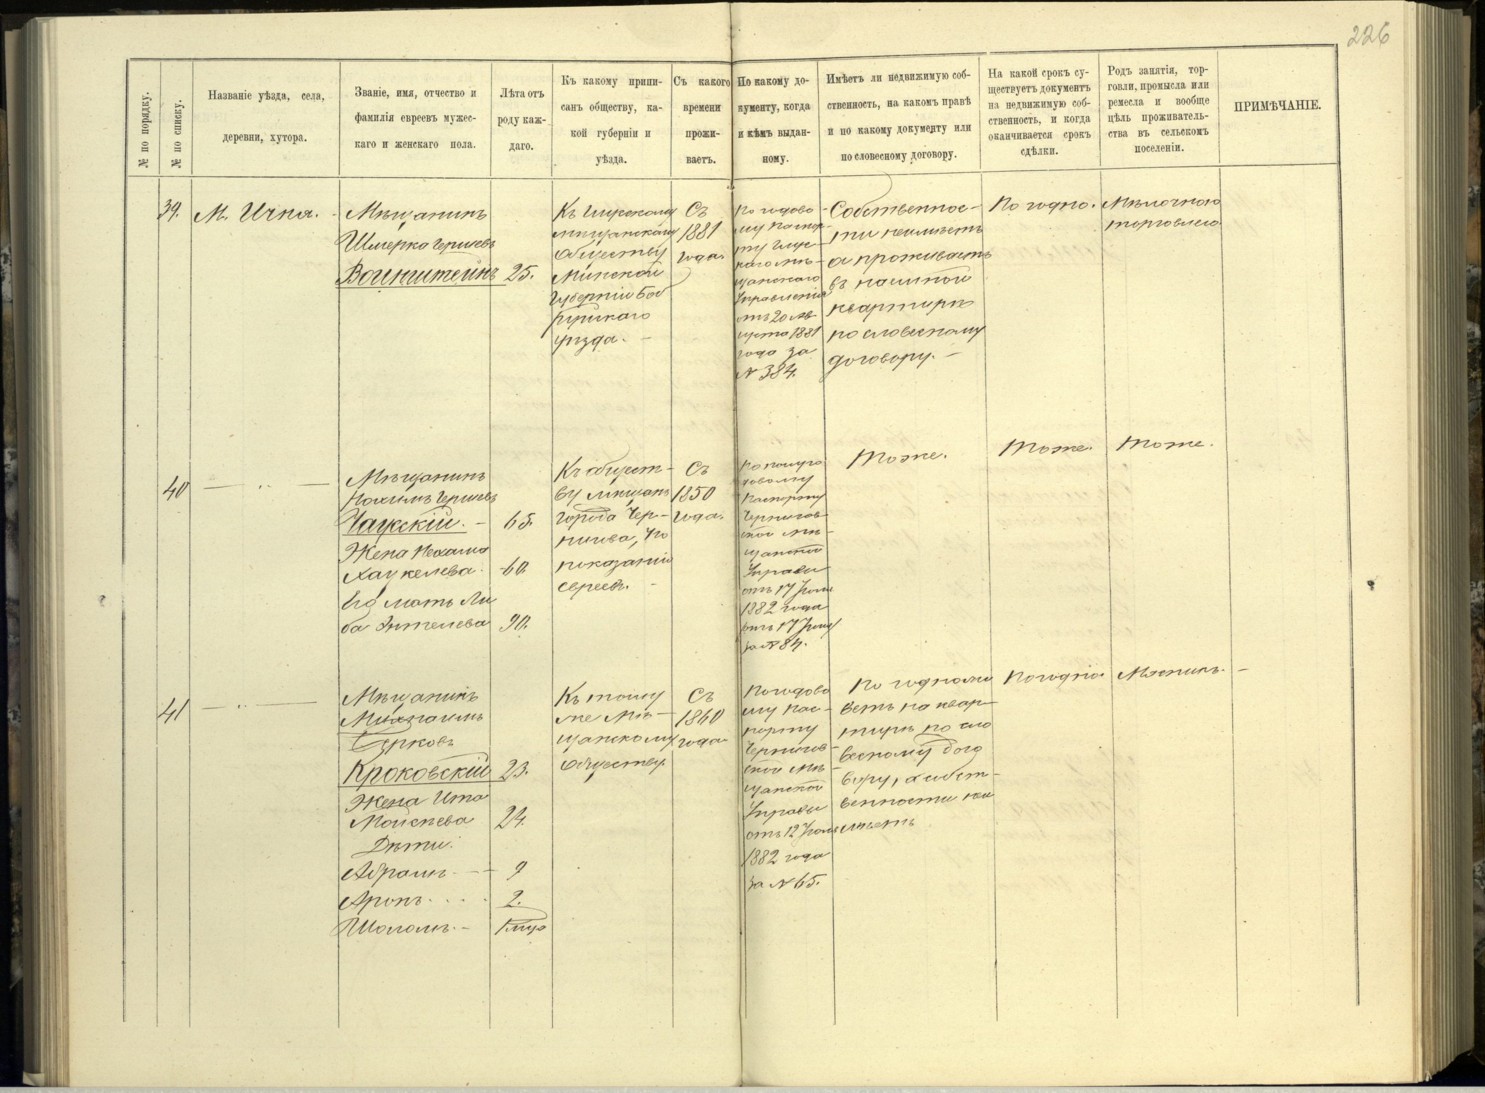 226
№ по порядку.
№ по списку.
Названіе уѣзда, села,
деревни, хутора.
Званіе, имя, отчество и
фамилія евреевъ мужес-
каго и женскаго пола.
Лѣта отъ
роду каж-
даго.
Къ какому припи-
санъ обществу, ка-
кой губерніи и
уѣзда.
Съ какого
времени
прожи-
ваетъ.
По какому до-
кументу, когда
и кѣмъ выдан-
ному.
Имѣетъ ли недвижимую соб-
ственность, на какомъ правѣ
и по какому документу или
по словесному договору.
На какой срокъ су-
ществуетъ документъ
на недвижимую соб-
ственность, и когда
оканчивается срокъ
сдѣлки.
Родъ занятія, тор-
говли, промысла или
ремесла и вообще
цѣль проживатель-
ства въ сельскомъ
поселеніи.
ПРИМѢЧАНІЕ.
39.
М. Ичня.
Мѣщанинъ
Шмерко Гершевъ
25.
Къ Глускому
мѣщанскому
обществу
Минской
Губерніи Боб
руйскаго
уѣзда.
Съ
1881
года.
По годово
му паспор-
ту Глус-
каго мѣ-
щанскаго
Управленія
отъ 20 Ав
густа 1881
года за
№ 384.
Собственнос-
ти неимѣетъ
а проживаетъ
въ наемной
квартирѣ
по словесному
договору.
По годно.
Мѣлочною
торговлею
40
— „ —
Мѣщанинъ
Нохимъ Гершевъ
Чаускій.
65.
Жена Нехама
Хацкелева.
60.
Его мать Ли
ба
90.
Къ общест-
ву мѣщанъ
города Чер-
нигова, по
показанію
евреевъ.
Съ
1850
года.
По полуго
довому
паспорту
Чернигов-
ской мѣ-
щанской
Управы
отъ 17 Іюля
1882 года
за № 84.
Тоже.
Тоже.
Тоже.
41
— „ —
Мѣщанинъ
Берковъ
Кроковскій
23.
Жена Ита
Моисѣева
24.
Дѣти:
Абрамъ
9
Аронъ
2.
Шоломъ
1 мѣс
Къ тому
же мѣ-
щанскому
обществу
Съ
1860
года
По годово
му пас-
порту
Чернигов-
ской мѣ-
щанской
Управы
отъ 12 Іюля
1882 года
за № 65.
веть на квар-
тирѣ по сло
весному дого
вору, а собст-
венности не
имѣетъ
Погодно.